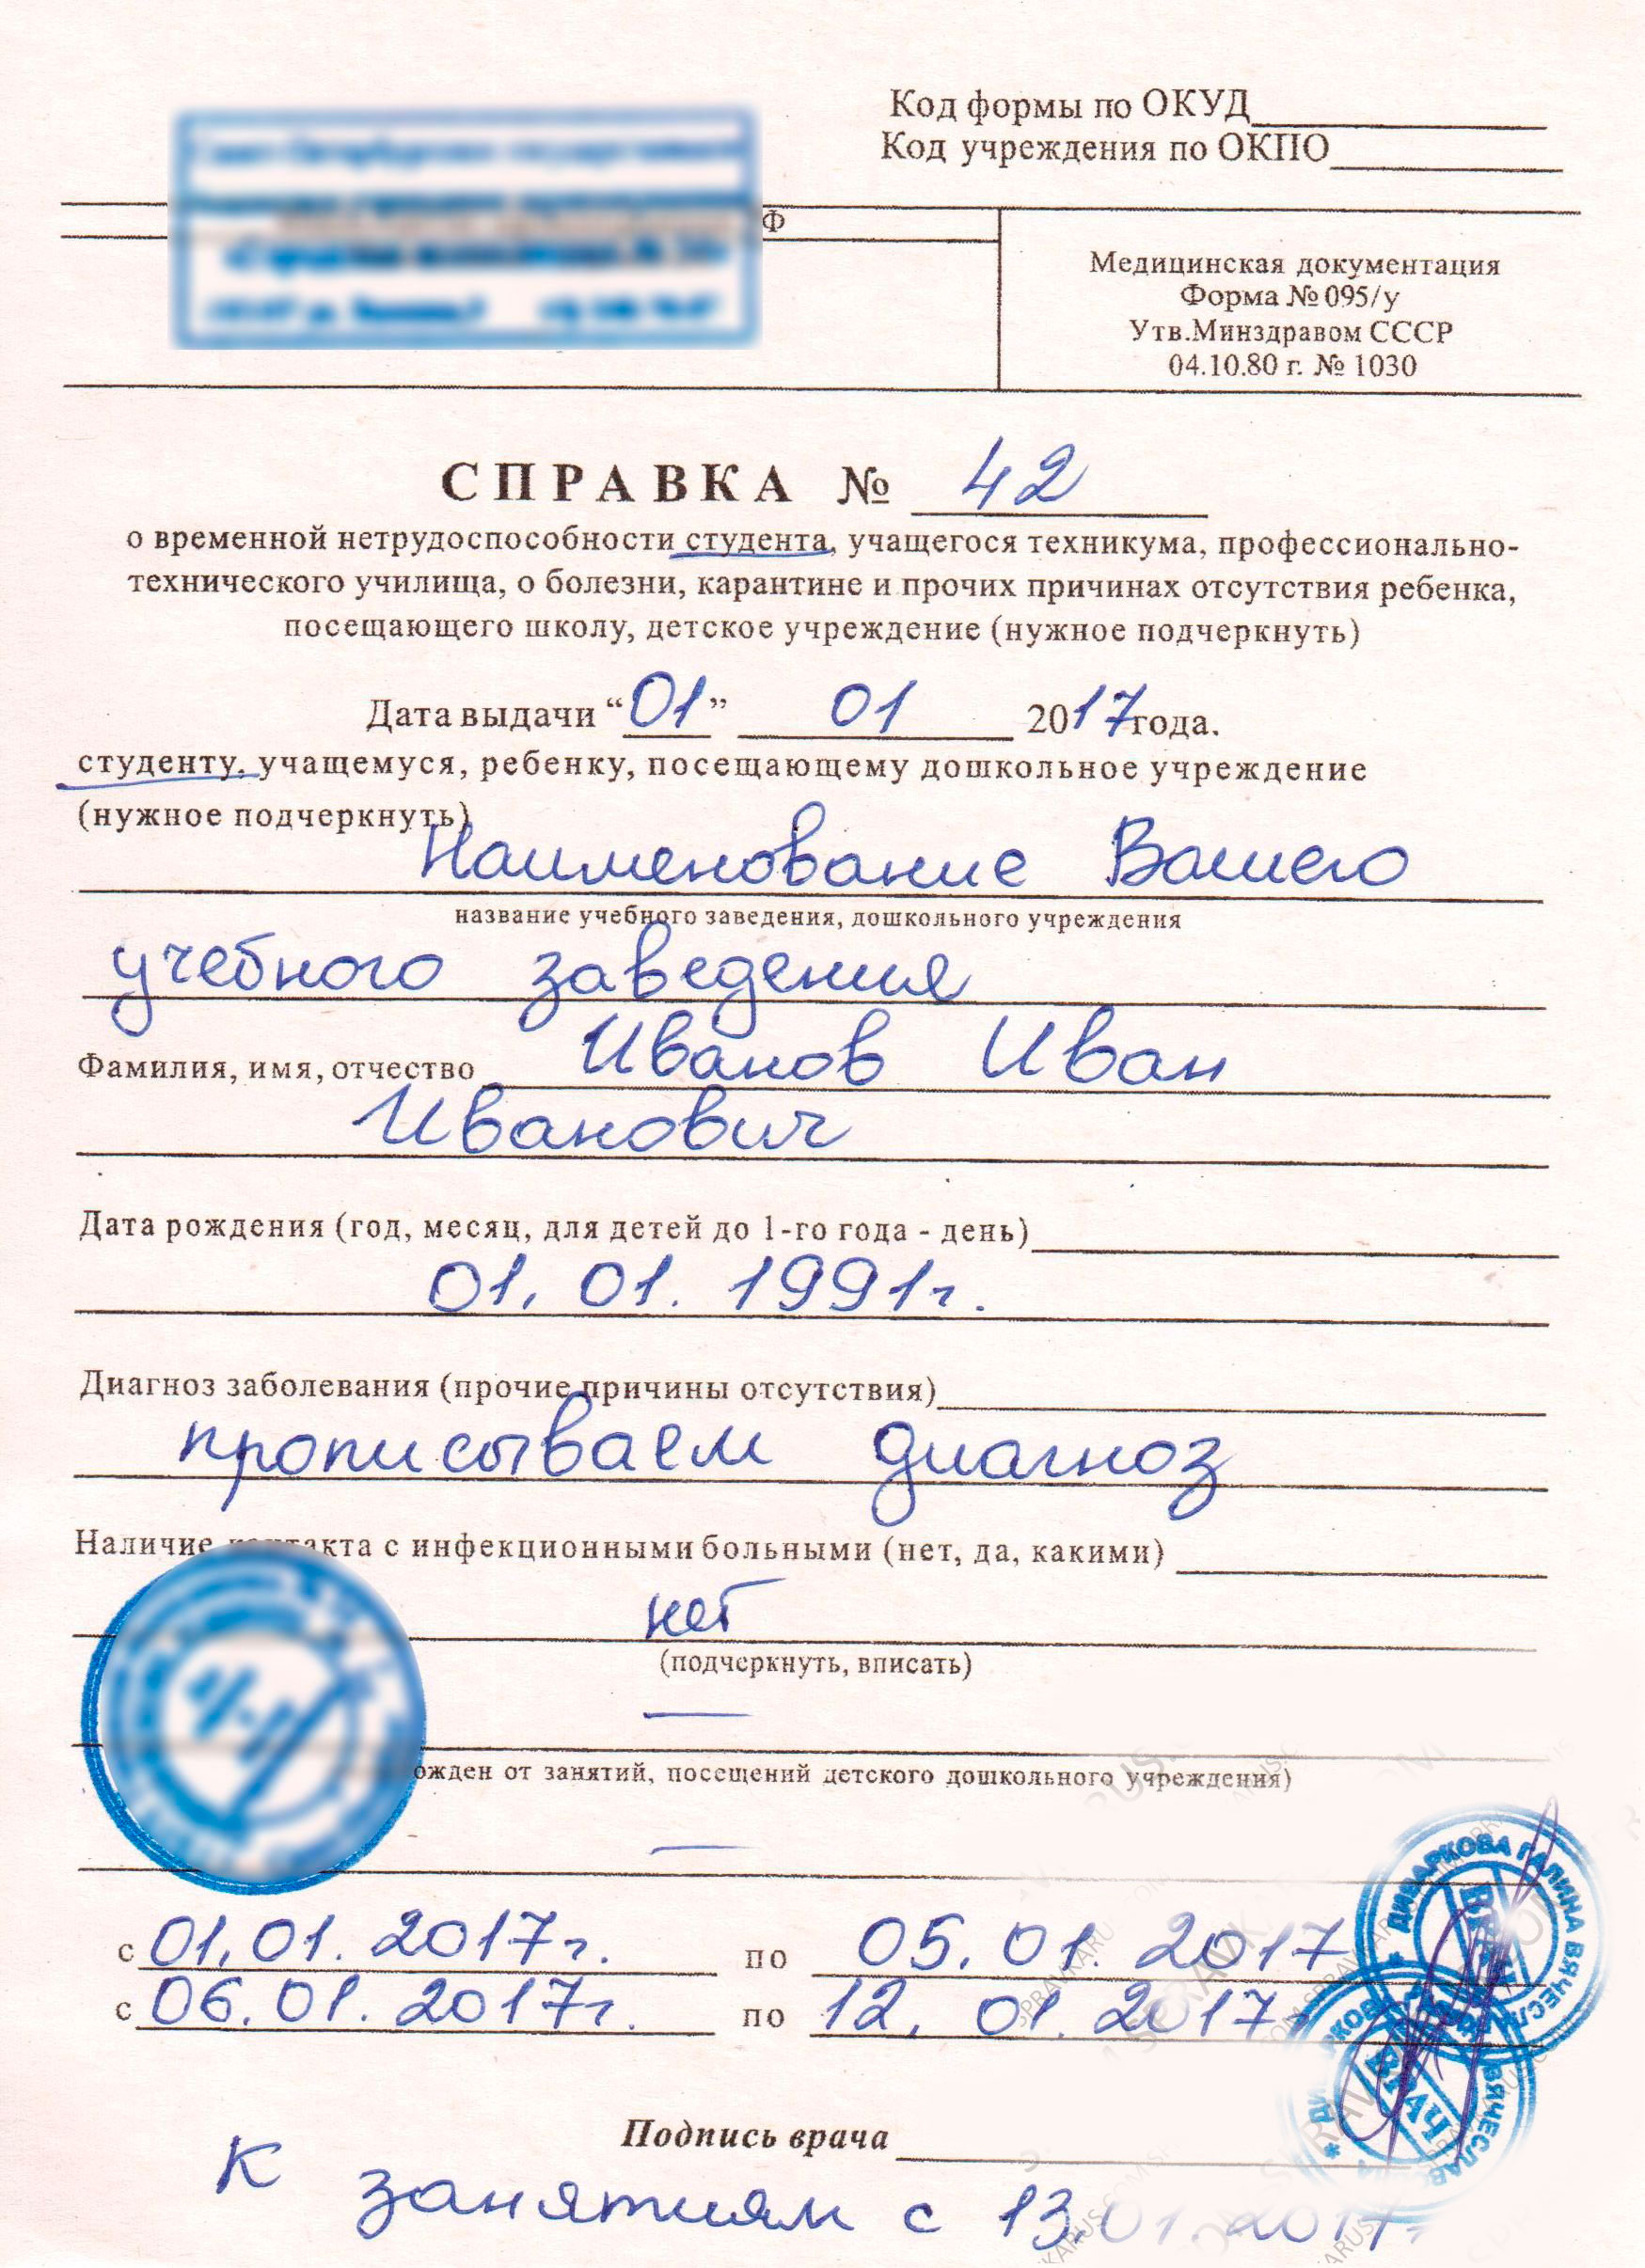 Код формы по ОКУД
Код учреждения по ОКПО
Ф
Медицинская документация
Форма № 095/у
Утв.Минздравом СССР
04.10.80 г. № 1030
СПРАВКА № 42
о временной нетрудоспособности студента, учащегося техникума, профессионально-
технического училища, о болезни, карантине и прочих причинах отсутствия ребенка,
посещающего школу, детское учреждение (нужное подчеркнуть)
Дата выдачи “01” 01 2017 года.
студенту, учащемуся, ребенку, посещающему дошкольное учреждение
(нужное подчеркнуть)
Наименование Вашего
название учебного заведения, дошкольного учреждения
учебного заведения
Фамилия, имя, отчество Иванов Иван
Иванович
Дата рождения (год, месяц, для детей до 1-го года - день)
01. 01. 1991г.
Диагноз заболевания (прочие причины отсутствия)
прописываем диагноз
Наличие контакта с инфекционными больными (нет, да, какими)
нет
(подчеркнуть, вписать)
—
ожден от занятий, посещений детского дошкольного учреждения)
—
ДИВАРКОВА ГАЛИНА ВЯЧЕСЛ
ВРАЧ
с 01.01. 2017г. по 05. 01. 2017
с 06. 01. 2017г. по 12. 01. 2017г
ВРАЧ
Подпись врача
К занятиям с 13.01.2017г.